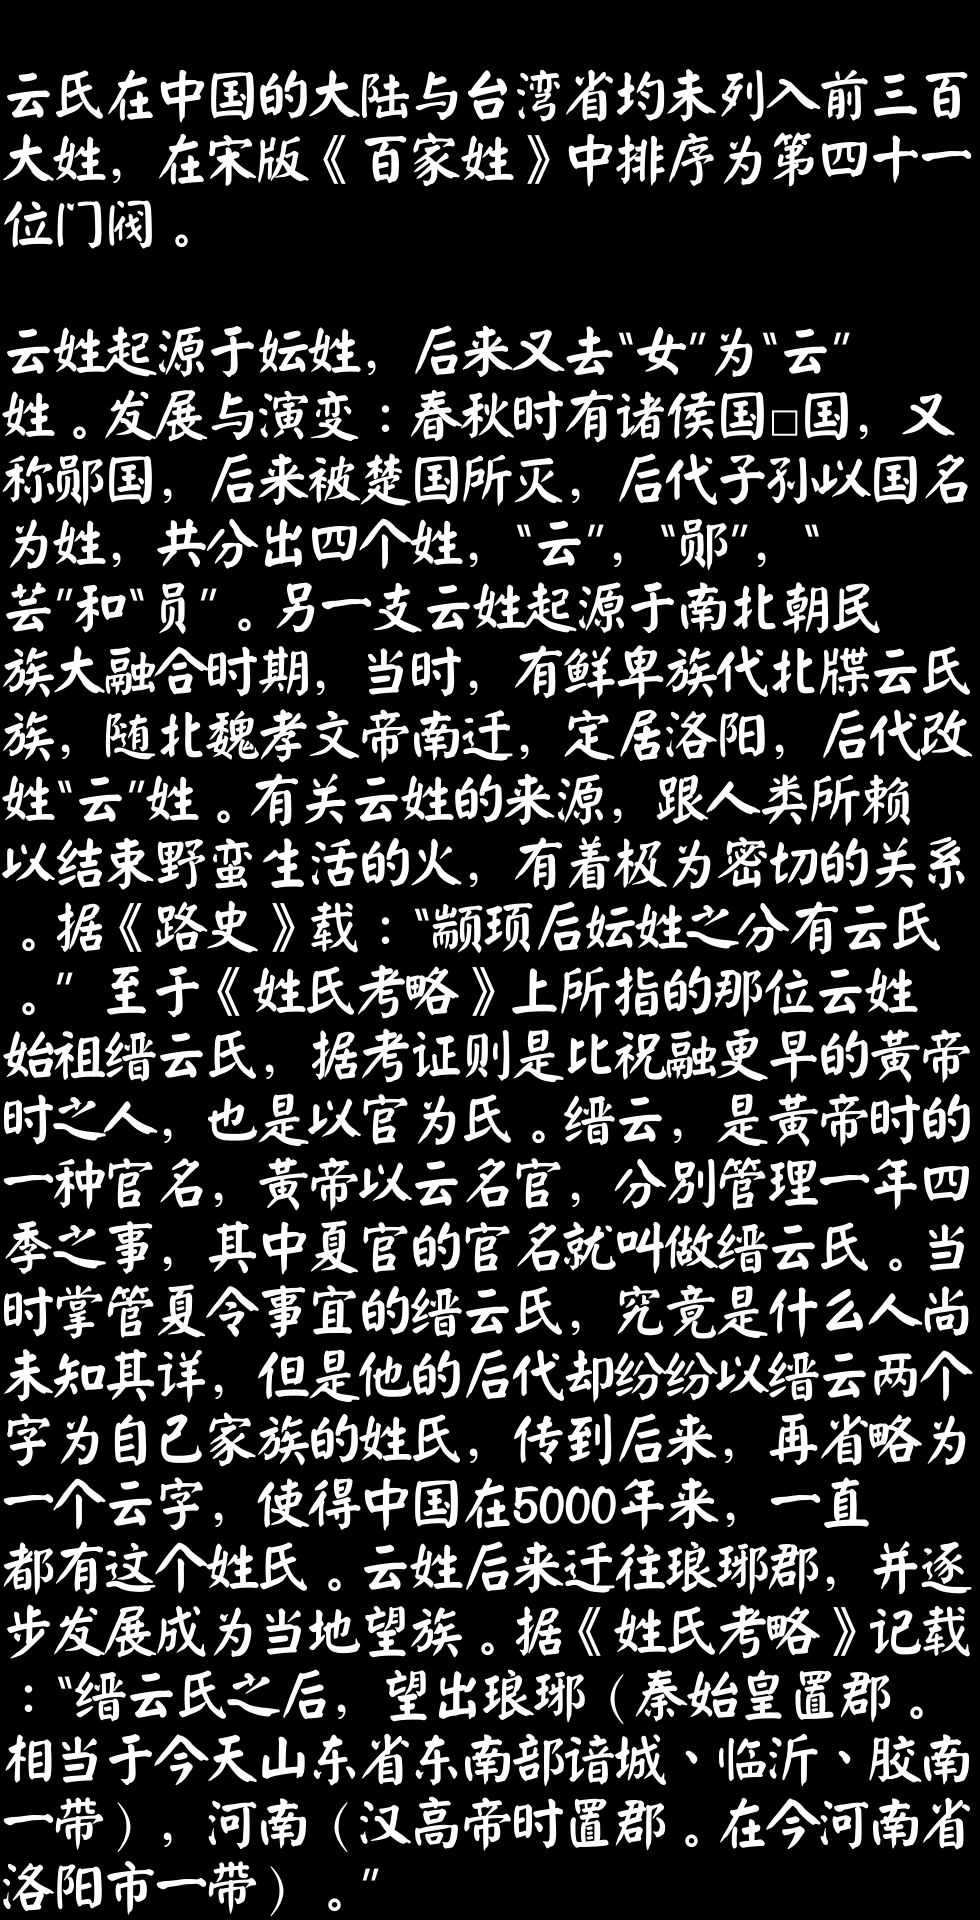 云氏在中国的大陆与台湾省均未列入前三百
大姓，在宋版《百家姓》中排序为第四十一
位门阀。
云姓起源于妘姓，后来又去“女”为“云”
姓。发展与演变：春秋时有诸侯国□国，又
称郧国，后来被楚国所灭，后代子孙以国名
为姓，共分出四个姓，“云”，“郧”，“
芸”和“员”。另一支云姓起源于南北朝民
族大融合时期，当时，有鲜卑族代北牒云氏
族，随北魏孝文帝南迁，定居洛阳，后代改
姓“云”姓。有关云姓的来源，跟人类所赖
以结束野蛮生活的火，有着极为密切的关系
。据《路史》载：“颛顼后妘姓之分有云氏
。”至于《姓氏考略》上所指的那位云姓
始祖缙云氏，据考证则是比祝融更早的黄帝
时之人，也是以官为氏。缙云，是黄帝时的
一种官名，黄帝以云名官，分别管理一年四
季之事，其中夏官的官名就叫做缙云氏。当
时掌管夏令事宜的缙云氏，究竟是什么人尚
未知其详，但是他的后代却纷纷以缙云两个
字为自己家族的姓氏，传到后来，再省略为
一个云字，使得中国在5000年来，一直
都有这个姓氏。云姓后来迁往琅琊郡，并逐
步发展成为当地望族。据《姓氏考略》记载
：“缙云氏之后，望出琅琊（秦始皇置郡。
相当于今天山东省东南部谙城、临沂、胶南
一带），河南（汉高帝时置郡。在今河南省
洛阳市一带）。”